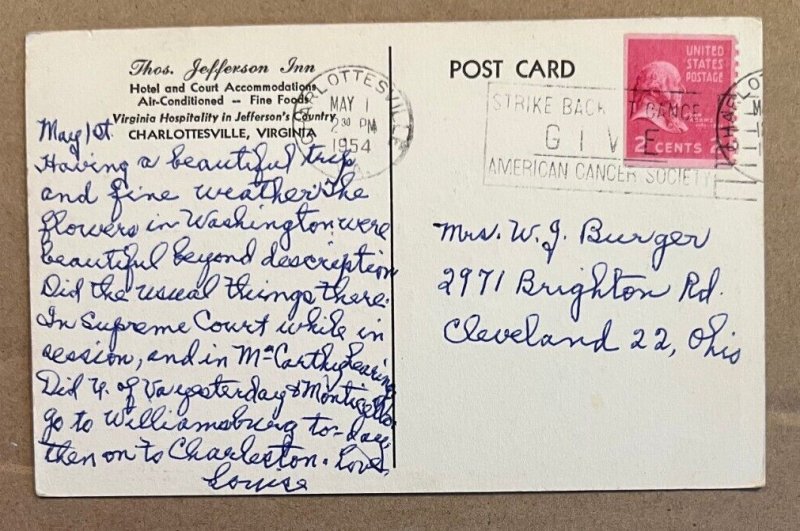 Thos. Jefferson Inn
Hotel and Court Accommodations
Air-Conditioned -- Fine Foods
Virginia Hospitality in Jefferson's Country
CHARLOTTESVILLE, VIRGINIA
May 1st.
Having a beautiful trip
and fine weather. The
flowers in Washington were
beautiful beyond description
Did the usual things there.
In Supreme Court while in
session, and in McCarthy hearing
Did U. of Va yesterday & Monticello
go to Williamsburg to-day,
then on to Charleston. Love,
Louise
POST CARD
CHARLOTTESVILLE
MAY 1
2 30 PM
1954
STRIKE BACK AT CANCE
GIVE
AMERICAN CANCER SOCIETY
UNITED
STATES
POSTAGE
ADAMS
2 CENTS 2
CHARLO
M
1
Mrs. W. J. Burger
2971 Brighton Rd.
Cleveland 22, Ohio